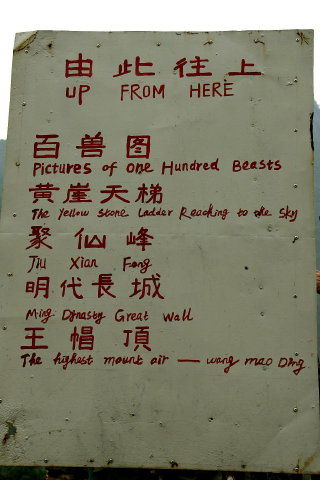 由此往上
UP FROM HERE
百兽图
Pictures of one Hundred Beasts
黄崖天梯
The Yellow stone Ladder Reaching to the Sky
聚仙峰
Jiu Xian Feng
明代長城
Ming Dynasty Great Wall
王帽頂
The highest mount air — wang mao Ding